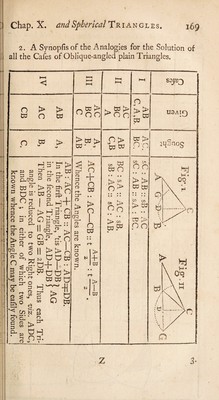 Chap. X. and Spherical TRIANGLES. 169
2. A Synopsis of the Analogies for the Solution of
all the Cases of Oblique-angled plain Triangles.
Cases
Given
Sought
Fig. I
Fig. II
I
AB
C, A, B
AC
BC
sC : AB :: sB : AC
sC : AB :: sA : BC.
II
AC
BC
A
B
BC : sA :: AC : sB.
sB : AC :: sC : AB.
III
AC
CB
C
A,
B.
AC+CB : AC−CB :: t A+B/2 : t A−B/2.
Whence the Angles are known.
IV
AB
AC
CB
A,
B,
C.
AB : AC + CB :: AC−CB : AD∓DB.
In the first Triangle, 'tis AD−DB } AG
in the second Triangle, AD+DB
Then AB − AG = GB = 2DB. Thus each Tri-
angle is reduced to two Right ones, viz. ADC,
and BDC; in either of which two Sides are
known whence the Angle C may be easily found.
Z
3.